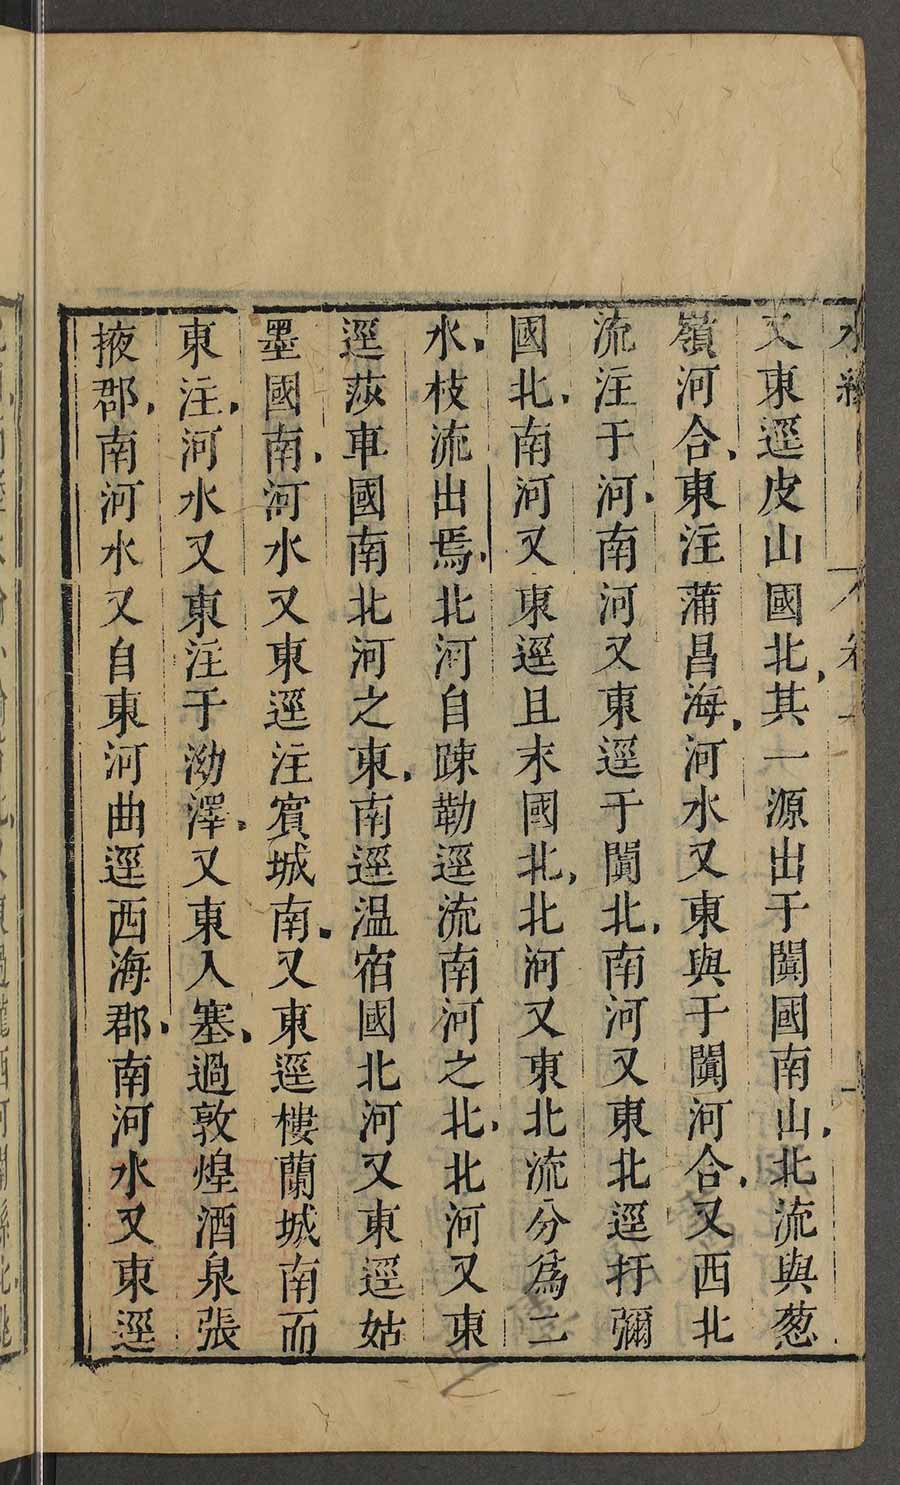 水經 卷一
又東逕皮山國北其一源出于闐國南山北流與葱
嶺河合東注蒲昌海河水又東與于闐河合又西北
流注于河南河又東逕于闐北南河又東北逕扜彌
國北南河又東逕且末國北北河又東北流分爲二
水枝流出焉北河自疎勒逕流南河之北北河又東
逕莎車國南北河之東南逕温宿國北河又東逕姑
墨國南河水又東逕注賓城南又東逕樓蘭城南而
東注河水又東注于泑澤又東入塞過敦煌酒泉張
掖郡南河水又自東河曲逕西海郡南河水又東逕